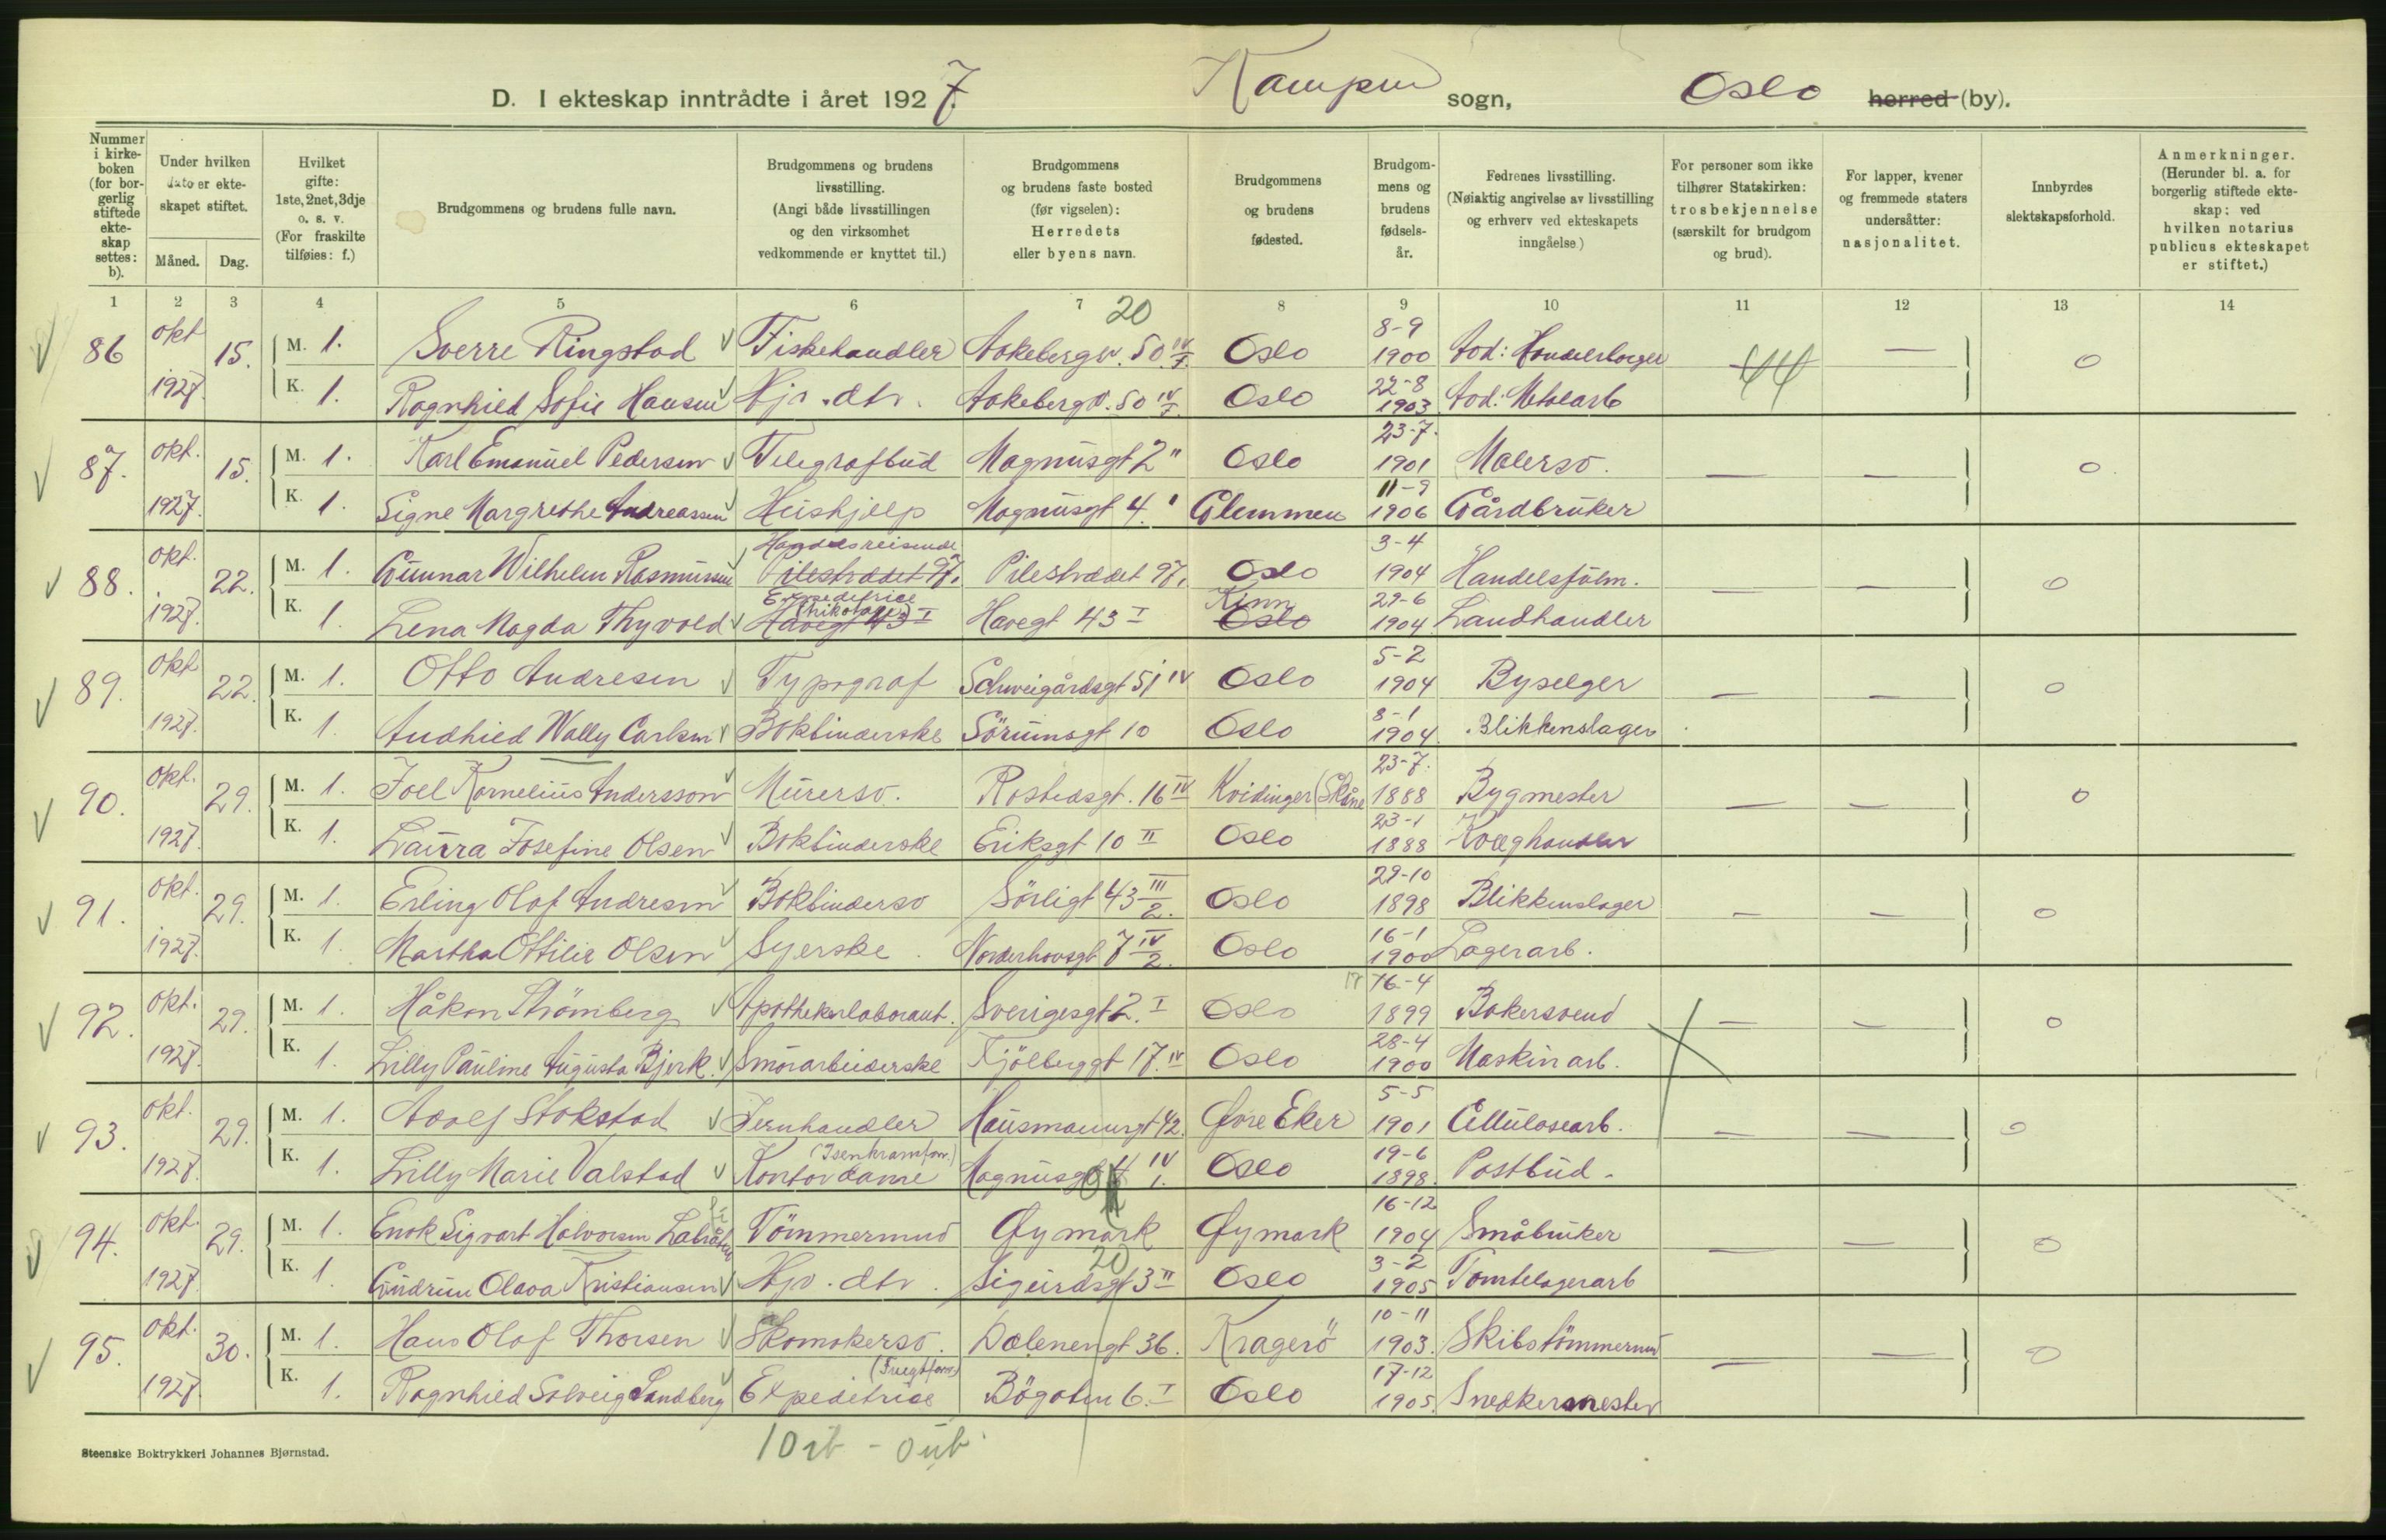 D. I ekteskap inntrådte i året 1927. Kampen sogn, Oslo herred (by).
Nummer i kirkeboken (for borgerlig stiftede ekteskap settes: b).
Under hvilken dato er ekteskapet stiftet.
Måned. Dag.
Hvilket gifte: 1ste, 2net, 3dje o. s. v. (For fraskilte tilføies: f.)
Brudgommens og brudens fulle navn.
Brudgommens og brudens livsstilling. (Angi både livsstillingen og den virksomhet vedkommende er knyttet til.)
Brudgommens og brudens faste bosted (før vigselen): Herredets eller byens navn.
Brudgommens og brudens fødested.
Brudgommens og brudens fødselsår.
Fedrenes livsstilling. (Nøiaktig angivelse av livsstilling og erhverv ved ekteskapets inngåelse.)
For personer som ikke tilhører Statskirken: trosbekjennelse (særskilt for brudgom og brud).
For lapper, kvener og fremmede staters undersåtter: nasjonalitet.
Innbyrdes slektskapsforhold.
Anmerkninger. (Herunder bl. a. for borgerlig stiftede ekteskap; ved hvilken notarius publicus ekteskapet er stiftet.)
1 2 3 4 5 6 7 8 9 10 11 12 13 14
20
86 okt 1927. 15. M. 1. Sverre Ringstad Fiskehandler Aakebergv. 50 IV/I. Oslo 8-9 1900 — 0
K. 1. Ragnhild Sofie Hansen Hjv. dtr. Aakebergv. 50 IV/I. Oslo 22-8 1903
87. okt. 1927. 15. M. 1. Karl Emanuel Pedersen Telegrafbud Magnusgt 2 II Oslo 23-7. 1901 Malersv. — — 0
K. 1. Signe Margrethe Andreassen Hushjelp Magnusgt 4. I Glemmen 11-9 1906 Gårdbruker
88. okt. 1927. 22. M. 1. Gunnar Wilhelm Rasmussen Handelsreisende Pilestrædet 97. Pilestrædet 97. Oslo 3-4 1904 Handelsfulm. — — 0
K. 1. Lena Magda Thyvold Expeditrice (trikotage) Havegt 43 I Havegt 43 I Kinn Oslo 29-6 1904 Landhandler
89. okt 1927. 22. M. 1. Otto Andresen Typograf Schweigårdsgt 51 IV Oslo 5-2 1904 Byselger — — 0
K. 1. Audhild Wally Carlsen Bokbinderske Sörumsgt 10 Oslo 8-1 1904. Blikkenslager
90. okt. 1927. 29. M. 1. Joel Kornelius Andersson Murersv. Rostedsgt. 16 IV Kvidinger (Skåne 23-7. 1888 Bygmester — — 0
K. 1. Laura Josefine Olsen Bokbinderske Eriksgt 10 II Oslo 23-1 1888 Kvæghandler
91. okt. 1927. 29. M. 1. Erling Olaf Andresen Bokbindersv Sörligt 43 III/2. Oslo 29-10 1898 Blikkenslager — — 0
K. 1. Martha Ottilie Olsen Syerske Norderhovsgt 7 IV/2. Oslo 16-1 1900 Lagerarb.
92. okt. 1927. 29. M. 1. Håkon Strömberg Apothekerlaborant. Sverigesgt 2. I Oslo 16-4 1899 Bakersvend — — 0
K. 1. Lilly Pauline Augusta Bjerk. Smörarbeiderske Kjölberggt 17. IV Oslo 28-4 1900 Maskinarb.
93. okt. 1927. 29. M. 1. Adolf Stokstad Jernhandler Hausmannsgt 42. Øvre Eker 5-5 1901 Cellulosearb. — — 0
K. 1. Lilly Marie Valstad Kontordame (Isenkramforr.) Magnusgt 4 IV/1. Oslo 19-6 1898. Postbud.
94. okt. 1927. 29. M. 1. Enok Sigvart Halvorsen Tömmermand Øymark Øymark 16-12 1904 Småbruker — — 0
20
K. 1. Gudrun Olava Kristiansen Hjv. dtr. Sigurdsgt 3 II Oslo 3-2 1905 Tomtelagerarb
95. okt. 1927. 30. M. 1. Hans Olaf Thorsen Skomakersv. Dælenengt 36. Kragerö 10-11 1903. Skibstömmermd — — 0
K. 1. Ragnhild Solveig Sandberg Expeditrice Bögaten 6. I Oslo 17-12 1905. Snedkermester
Steenske Boktrykkeri Johannes Bjørnstad.
10 ib - 0 ub